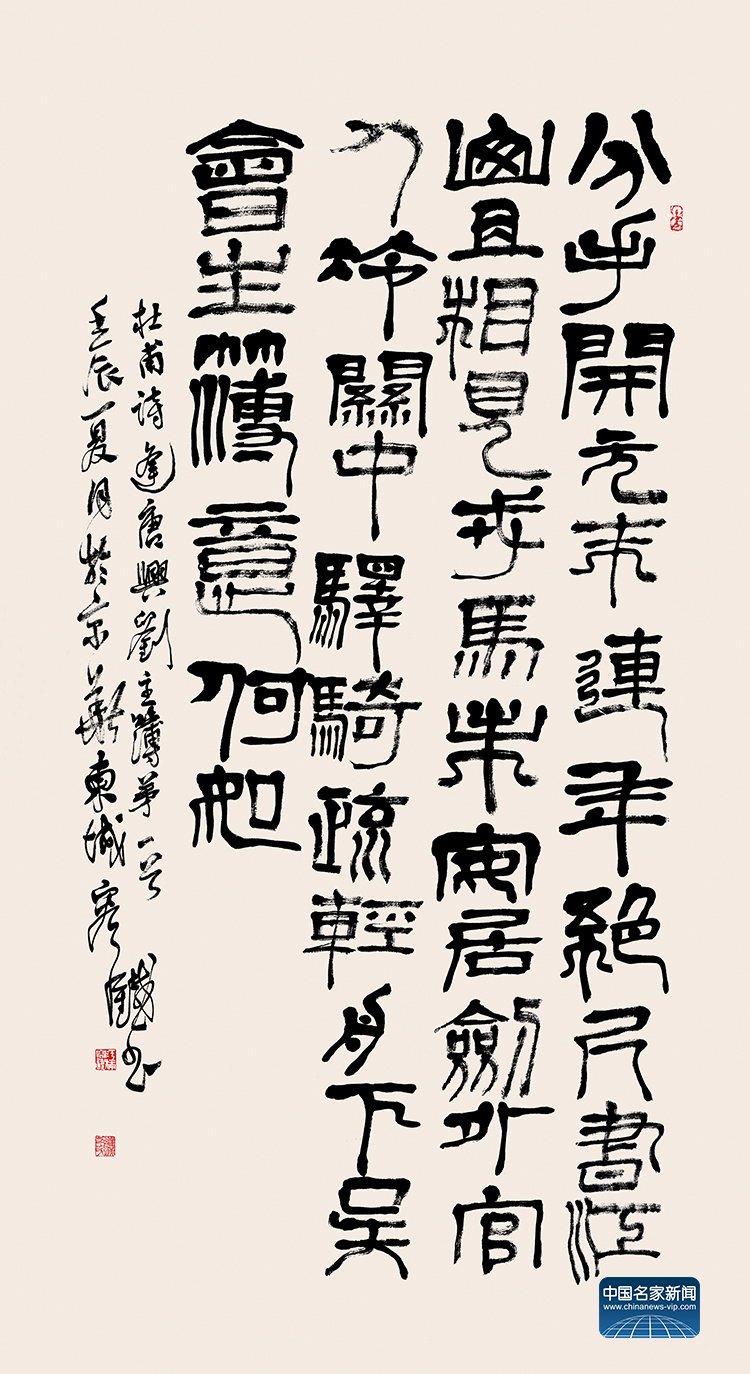 分手開元末連年絕尺書江
山且相見戎馬未安居劍外官
人冷關中驛騎疏輕舟下吳
會主簿意何如
杜甫詩逢唐興劉主簿弟一首
壬辰夏月於京華東城
中国名家新闻
www.chinanews-vip.com